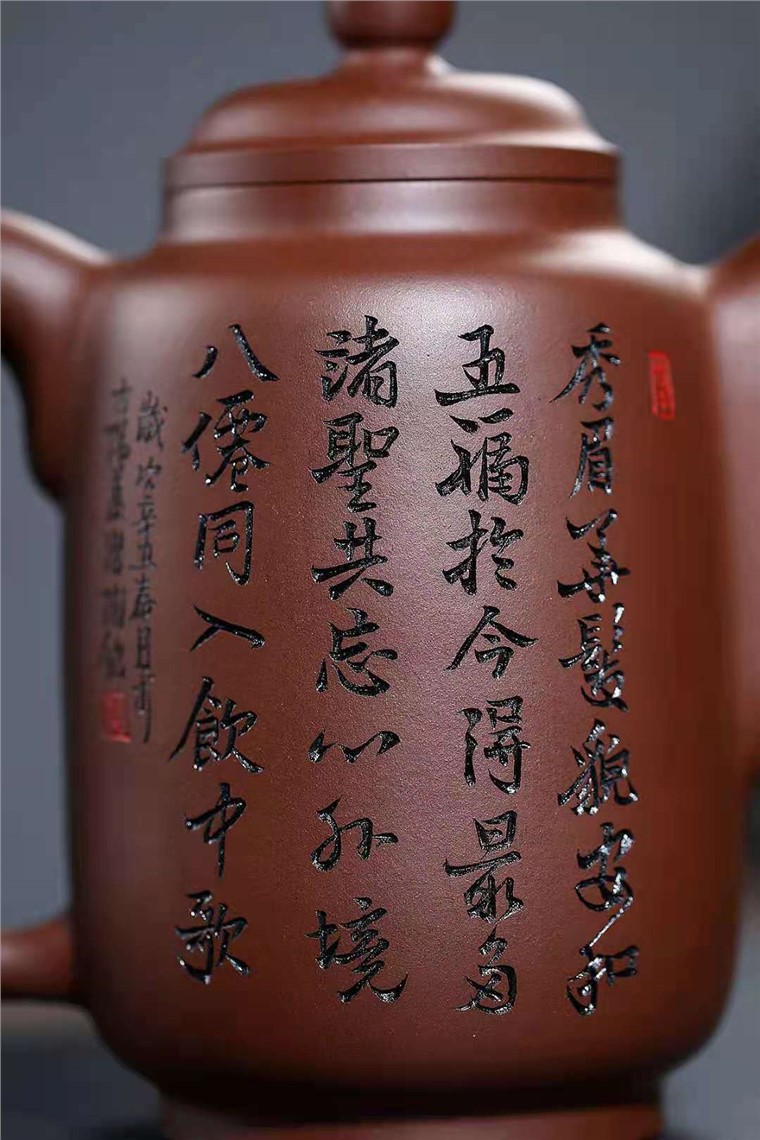 秀眉華髮貌安和
五福於今得最多
諸聖共忘心外境
八僊同入飲中歌
歲次辛丑春月於